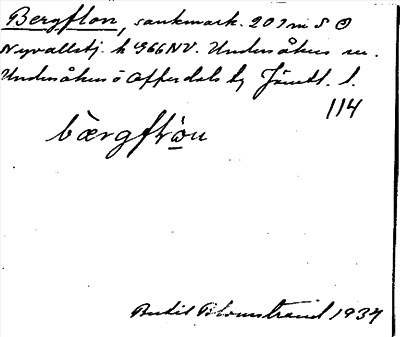 Bergflon, sankmark. 201 m S O
Nyvallstj. h 966 NV. Undersåkers sn.
Undersåkers o Offerdals tg Jämtl. l.
114
bærgfḷọn
Bertil Blomstrand 1934